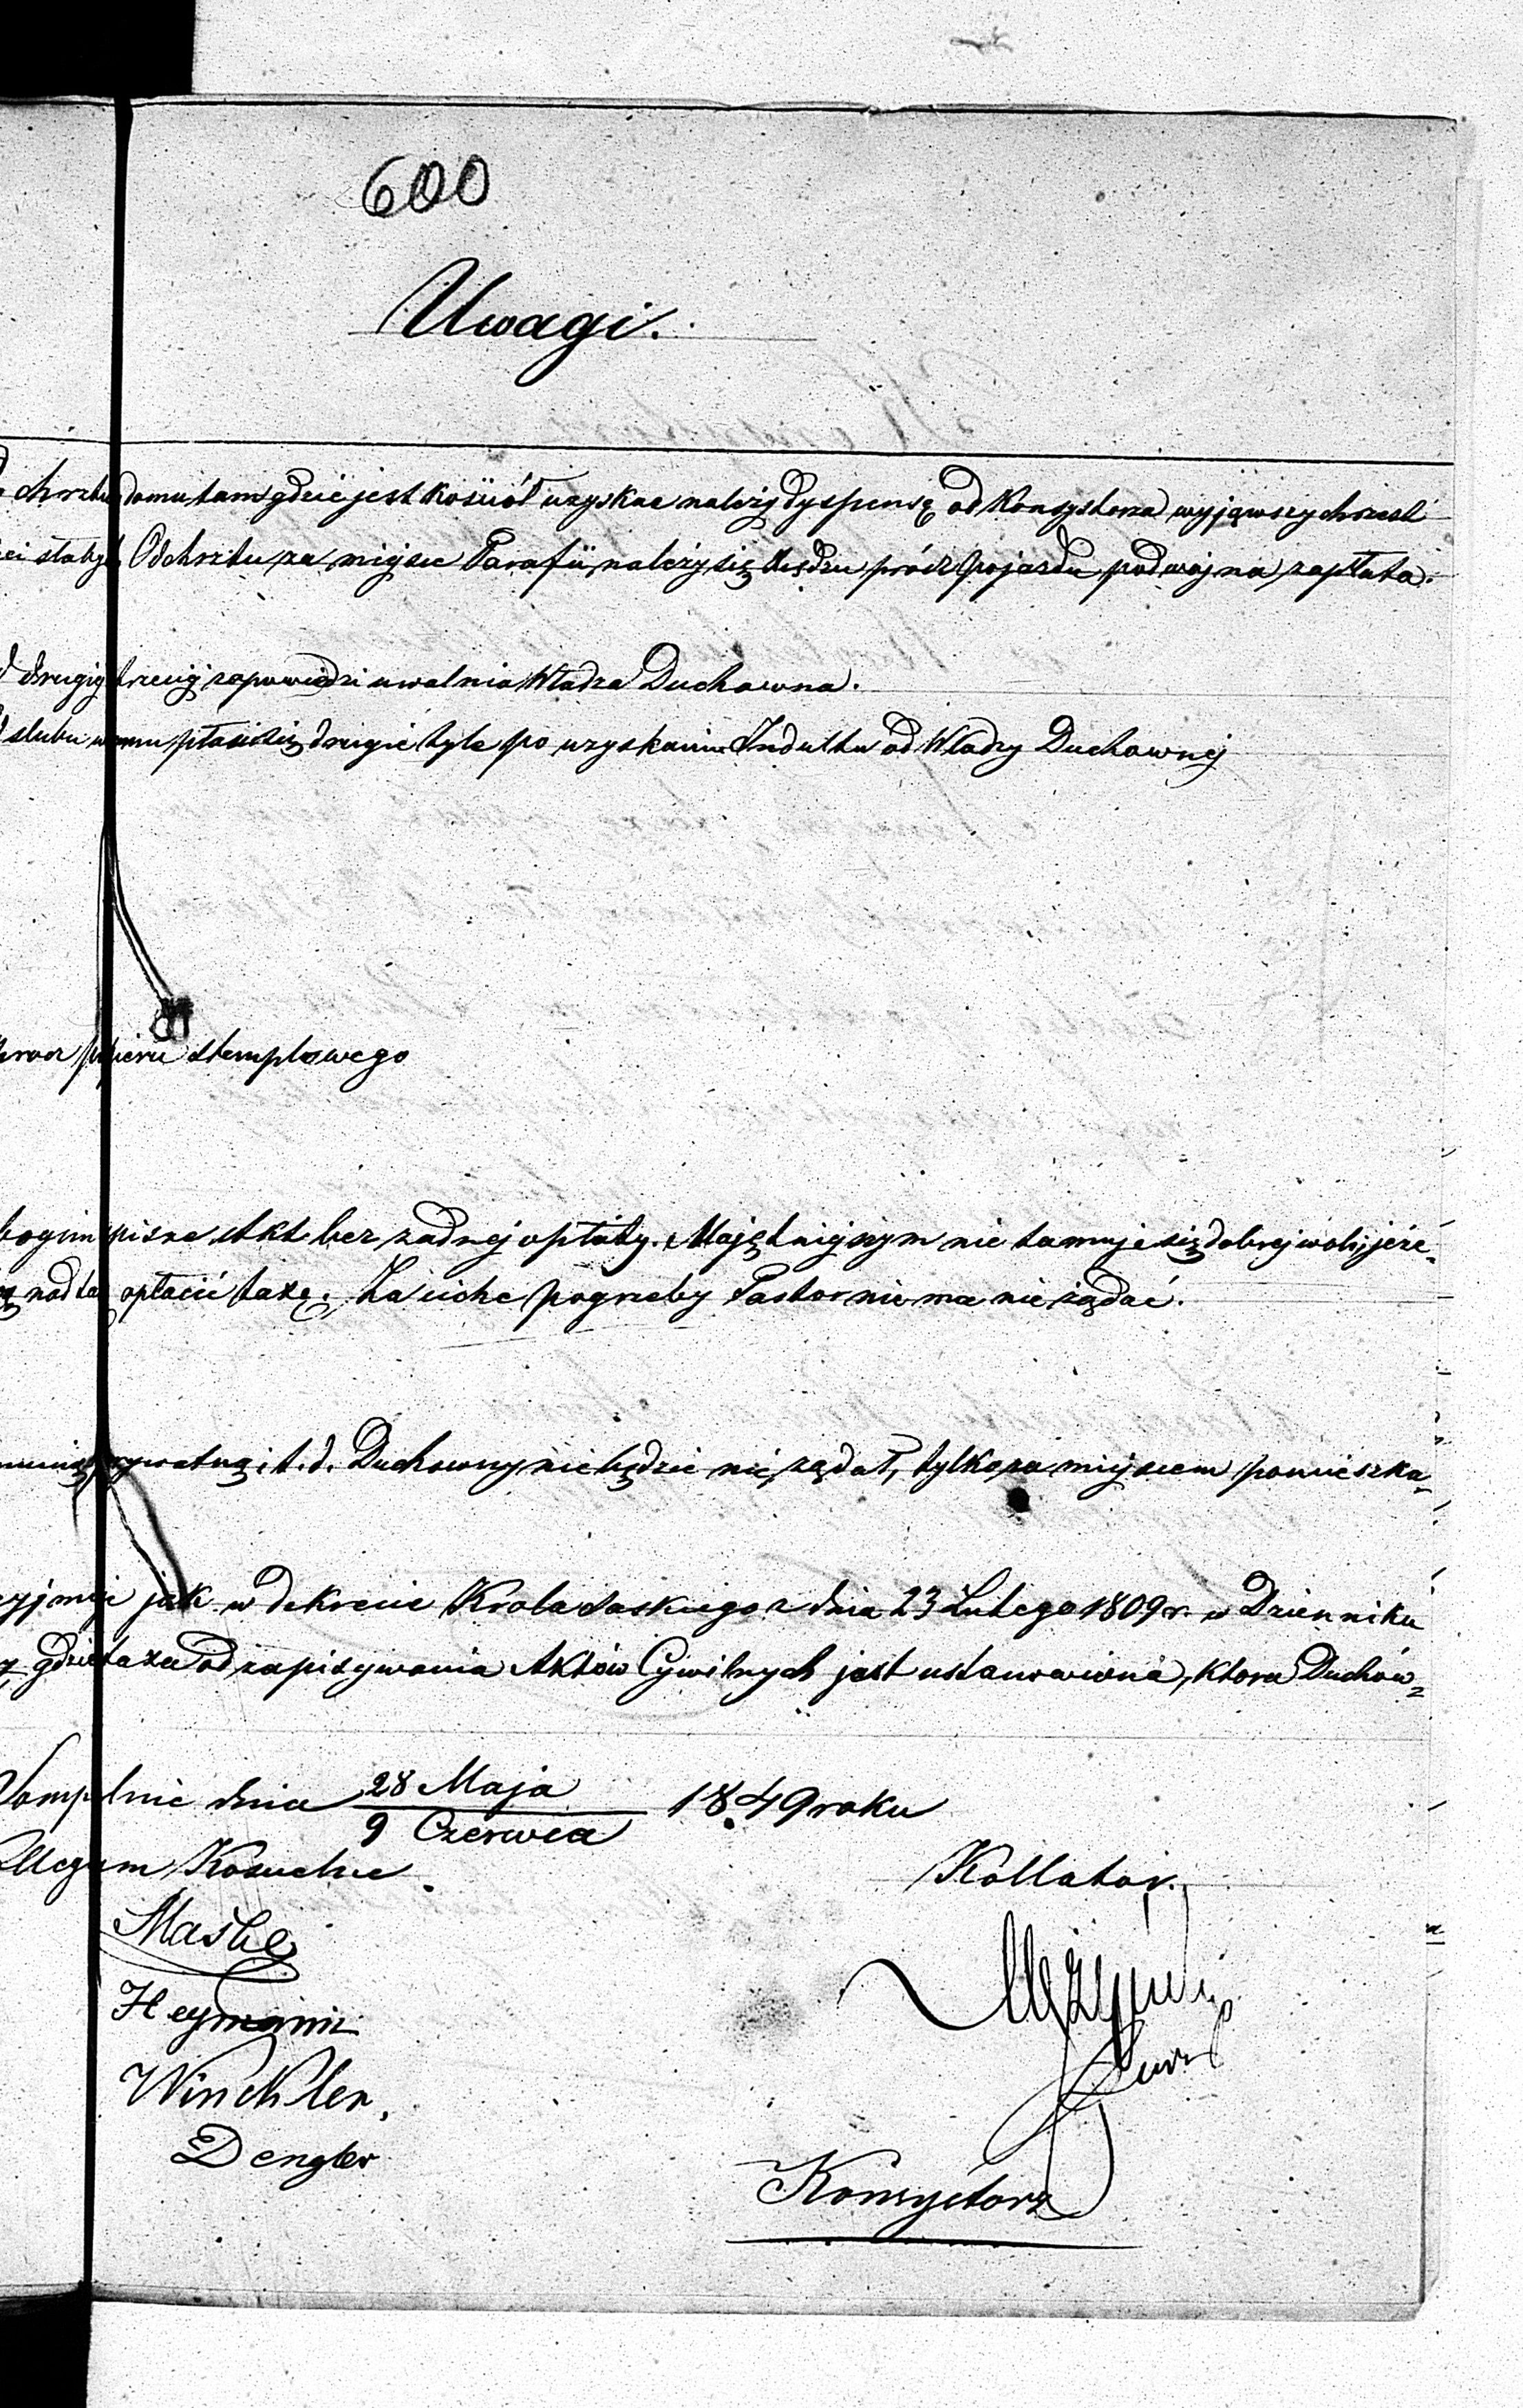 600
Uwagi.
chrztu domu tam gdzie jest Kościół uzyskac należy dyspensę od Konsystorza wyjąwszy chrzest
ci słabych Od chrztu za miejsce Parafii, należy się Księdzu prócz pojazdu podwójna zapłata.
drugiej trzeciej zapowiedzi uwalnia Władza Duchowna.
slubu w domu płaci się drugie tyle po uzyskaniu Indultu od Władzy Duchownej
papieru stemplowego
bogim pisze Akt bez żadnej opłaty. Majętniejszym nie tamuje się dobrej woli jeże-
nad tę opłacić taxę. Za ciche pogrzeby Pastor nie ma nic żądać.
prywatną i t. d. Duchowny nie będzie nic żądał, tylko za miejscem pomieszka-
jak w dekrecie Krola Saskiego z dnia 23 Lutego 1809 r. w Dzienniku
gdzie taxa od zapisywania Aktów Cywilnych jest ustanowiona, ktora Duchow-
Sompolnie dnia 28 Maja / 9 Czerwca 1849 roku
Kollegium Koscielne.
Kollator.
Maske
Heymann
Winckler.
Dengler
Konsystorz